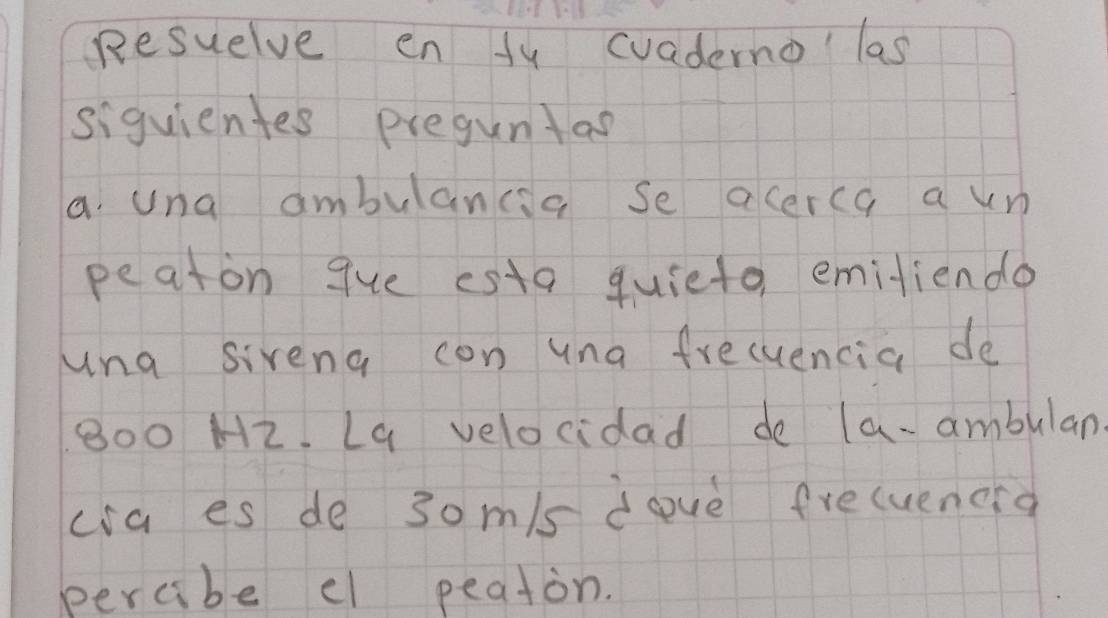 Resuelve en tu cuaderno las
siguientes preguntas
a. Una ambulancia se acerca a un
peatón que esta quieto emitiendo
una sirena con una frecuencia de
800 Hz. La velocidad de la ambulan
cia es de 30 m/s ¿Qué frecuencia
percibe el peatón.